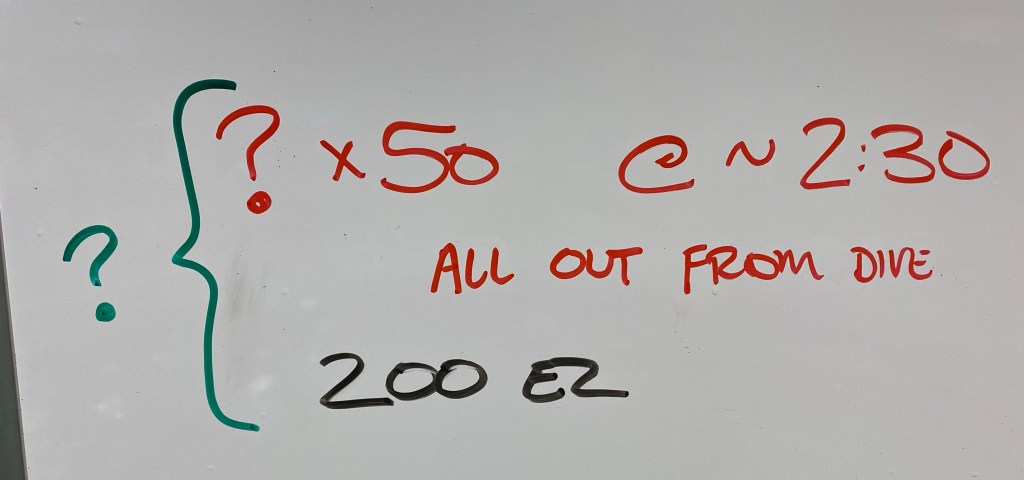 ? x 50 @ ~ 2:30
ALL OUT FROM DIVE
?
200 EZ